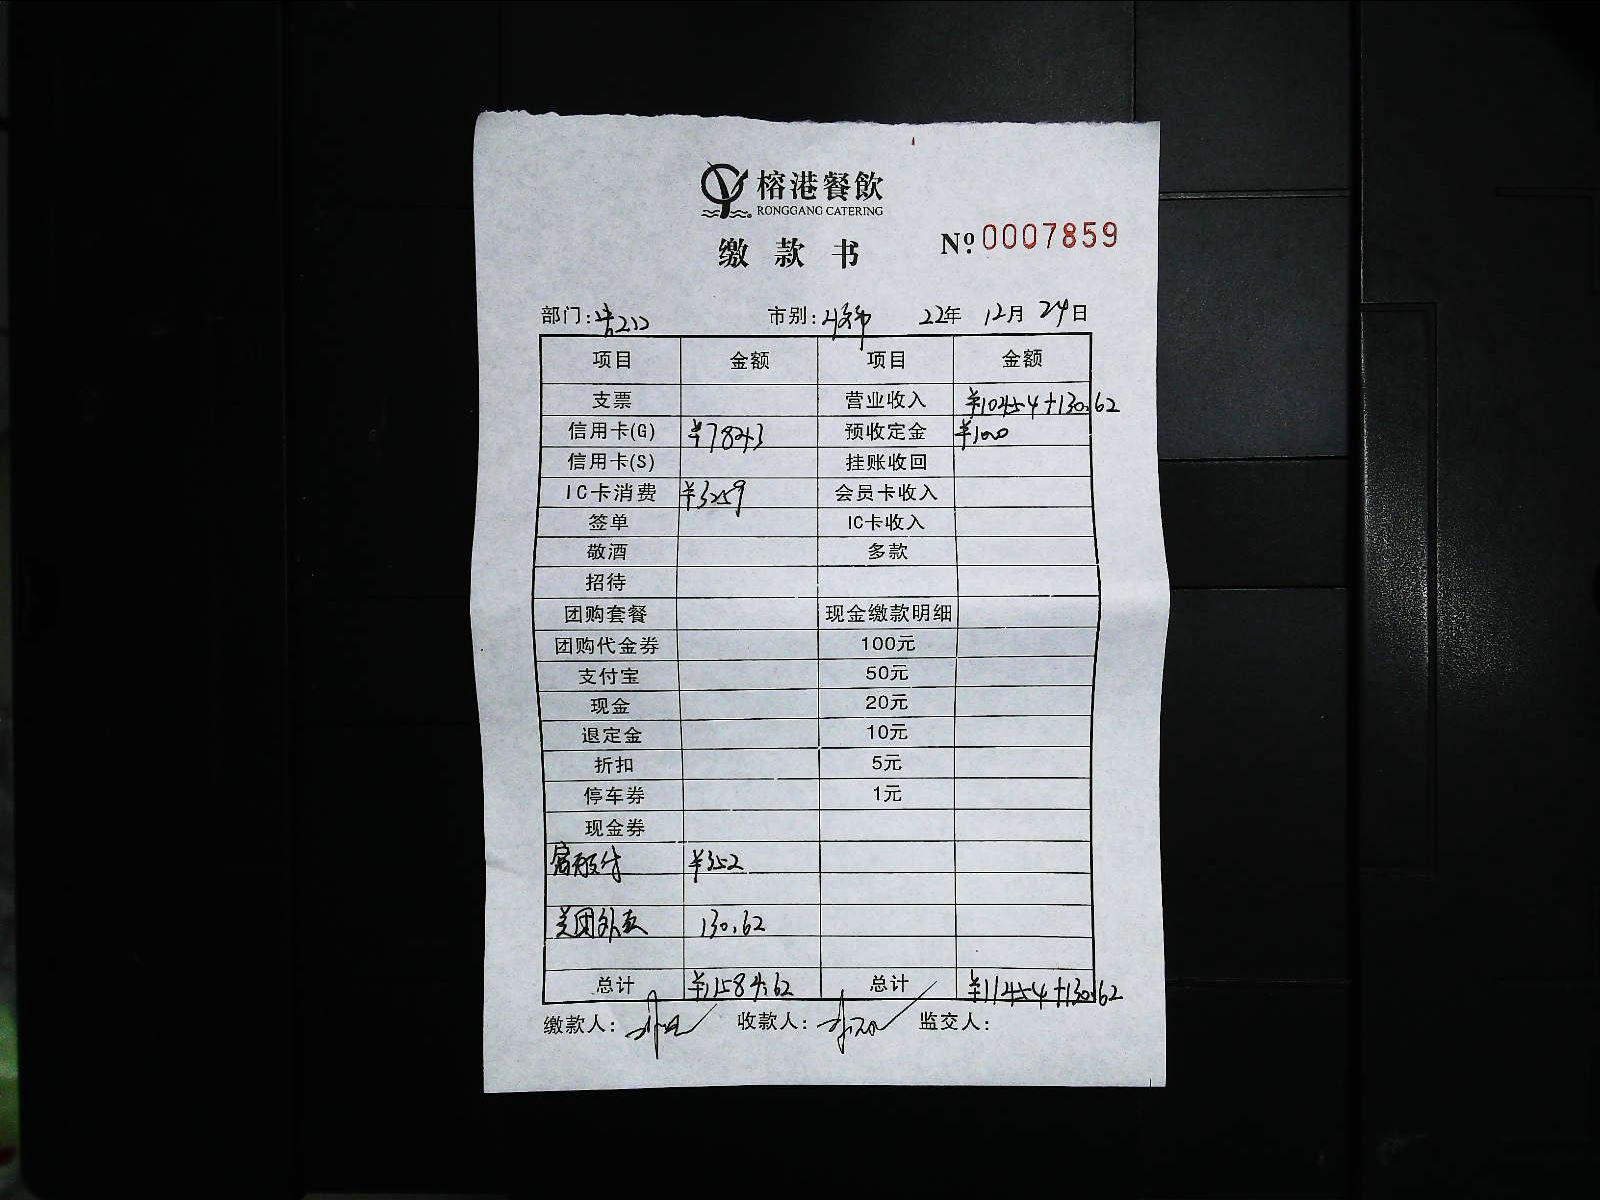 榕港餐飲
RONGGANG CATERING
缴款书 Nº 0007859
部门: 市别: 22年 12月 24日
项目 金额 项目 金额
支票 营业收入 ¥10454+130.62
信用卡(G) ¥7843 预收定金 ¥1000
信用卡(S) 挂账收回
IC卡消费 ¥3259 会员卡收入
签单 IC卡收入
敬酒 多款
招待
团购套餐 现金缴款明细
团购代金券 100元
支付宝 50元
现金 20元
退定金 10元
折扣 5元
停车券 1元
现金券
¥352
美团外卖 130.62
总计 ¥11584.62 总计 ¥11454+130.62
缴款人: 收款人: 监交人: